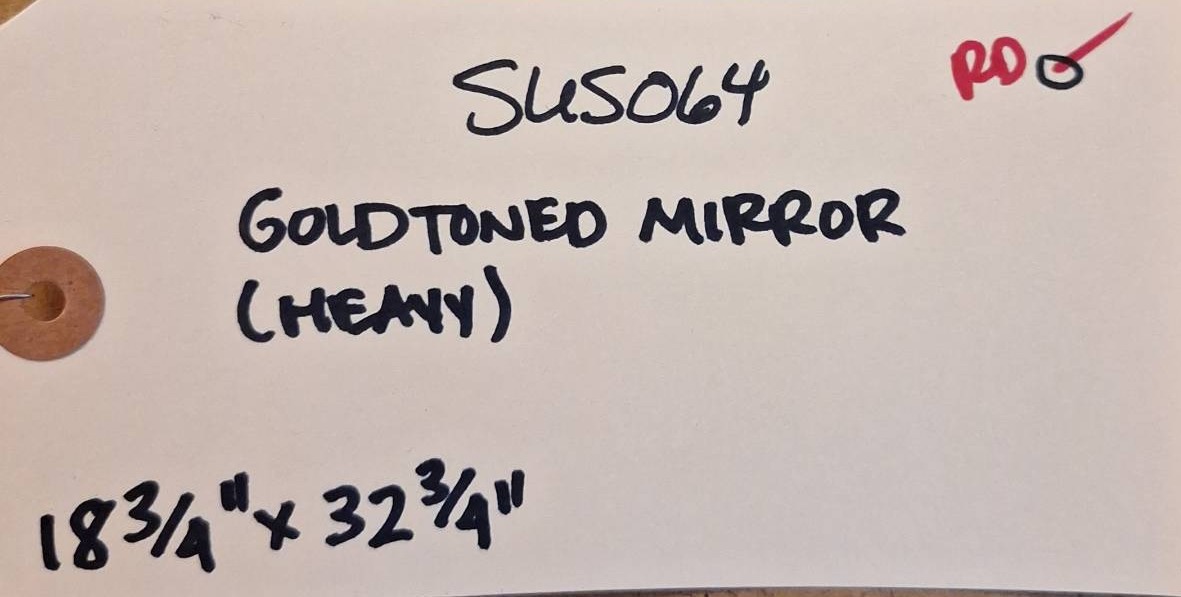 SUS064
RD
GOLDTONED MIRROR
(HEAVY)
18 3/4" x 32 3/4"